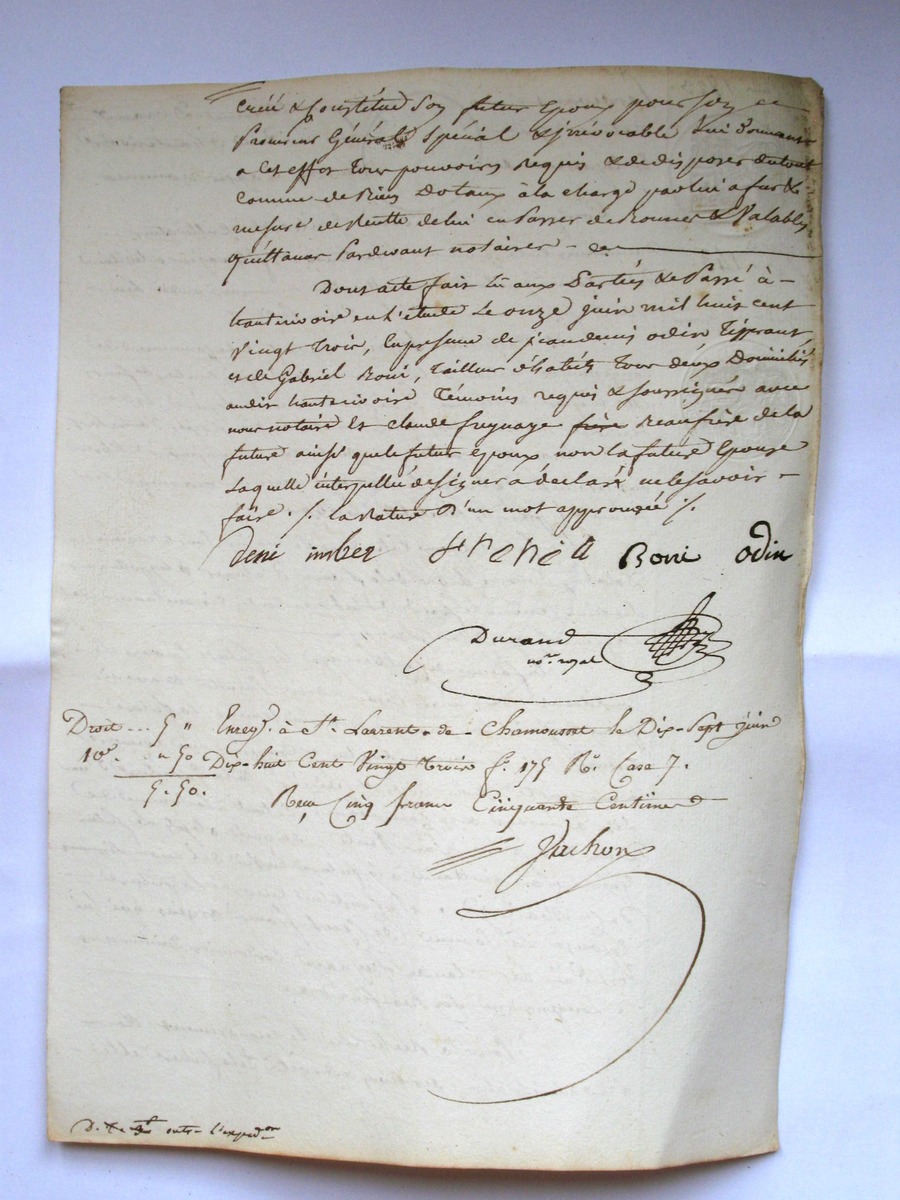 créé & Constitué Son futur Epoux pour Son
Procureur Général Spécial & Irrévocable Lui donnant
a Cet effet tous pouvoirs Requis & de disposer du tout
Comme de Biens Dotaux à la charge par lui a fur &
mesure de Recette de lui en Passer de bonnes & Valables
quittances Pardevant notaires
Dont acte fait lu aux Parties & Passé à
hauterivoire en l'étude Le onze juin mil huit cent
Vingt trois, En présence de odin Tisserant
et de Gabriel Boni, Tailleur d'habits tous deux Domiciliés
audit hauterivoire Témoins requis & soussignés avec
nous notaire Et Claude freynage frère Beaufrère de la
future ainsi que le futur Epoux non la future Epouse
Laquelle interpellée de signer a déclaré ne le savoir
faire ./. La Rature d'un mot approuvée ./.
deni imber Boni odin
Durand
nore. royal
Droit ... 5 " Enregt. à St. Laurent-de-Chamousset le Dix-Sept juin
10e. " " 50 Dix-huit Cent Vingt trois f.º 175 Rº. Case 7.
5. 50. Reçu Cinq francs Cinquante Centimes
Vachon
outre l'expedon